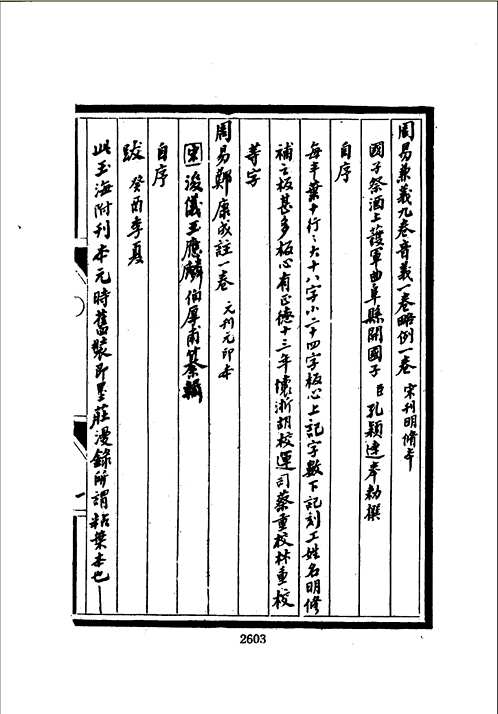 周易兼義九卷音義一卷略例一卷 宋刊明修本
國子祭酒上護軍曲阜縣開國子臣孔穎達奉勅撰
自序
每半葉十行〻大十八字小二十四字板心上記字數下記刻工姓名明修
補之板甚多板心有正德十三年懷浙胡校運司蔡重校林重校
等字
周易鄭康成註一卷 元刊元印本
浚儀王應麟伯厚甫纂輯
自序
跋 癸酉季夏
此玉海附刊本元時舊裝即墨莊漫錄所謂粘葉本也
一
2603